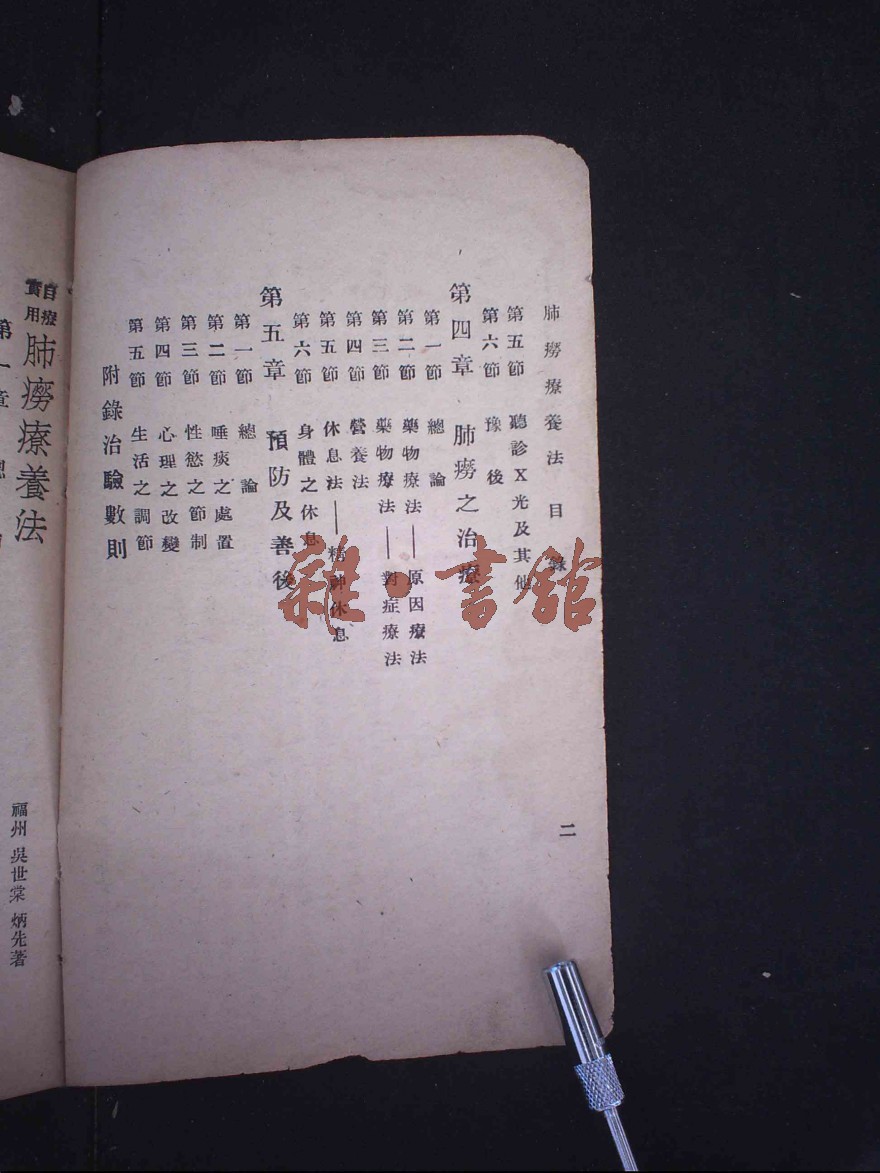 肺癆療養法 目 錄
二
第五節 聽診X光及其他
第六節 豫後
第四章 肺癆之治療
第一節 總論
第二節 藥物療法——原因療法
第三節 藥物療法——對症療法
第四節 營養法
第五節 休息法——精神休息
第六節 身體之休息
第五章 預防及善後
第一節 總論
第二節 唾痰之處置
第三節 性慾之節制
第四節 心理之改變
第五節 生活之調節
附錄治驗數則
雜·書館
自療
實用
肺癆療養法
福州 吳世棠 炳先著
第一章